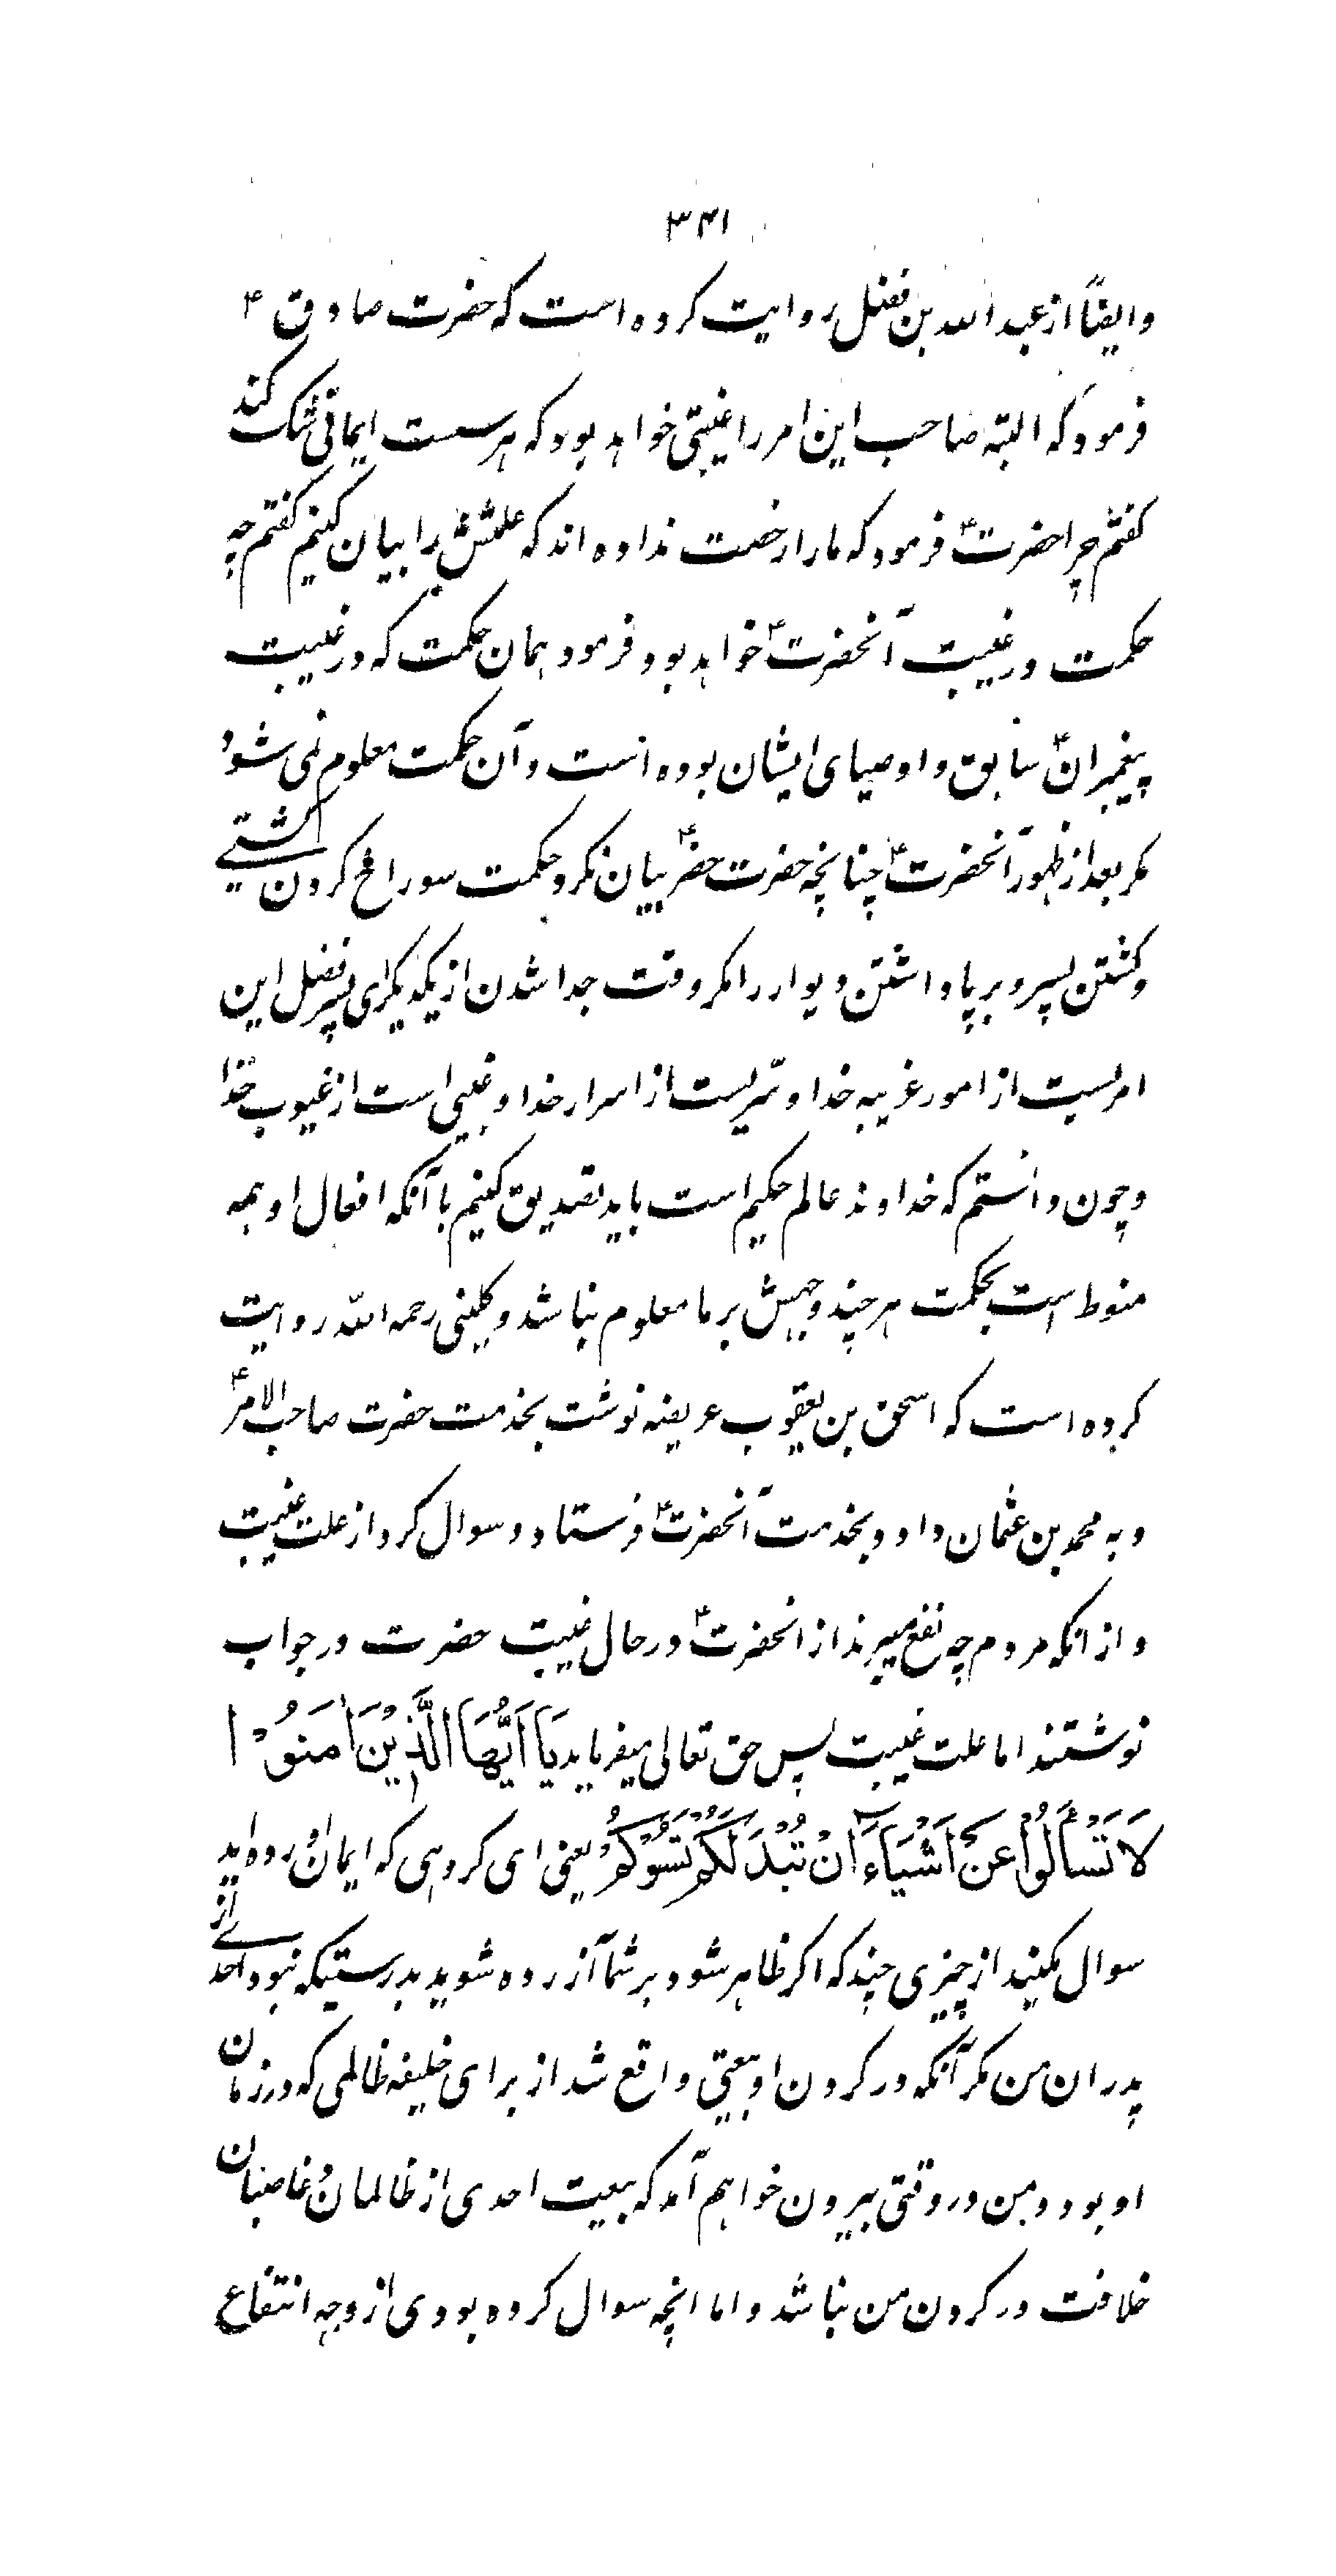 ۳۴۱
وایضاً از عبد الله بن فضل روایت کرده است که حضرت صادق ع
فرمود که البته صاحب این امر را غیبتی خواهد بود که هر سست ایمانی شک کند
کفتم چرا حضرت ع فرمود که ما را رخصت نداده اند که علتش را بیان کنیم کفتم چه
حکمت در غیبت آنحضرت ع خواهد بود فرمود همان حکمت که در غیبت
پیغمبران سابق و اوصیای ایشان بوده است و آن حکمت معلوم نمی شود
مکر بعد از ظهور آنحضرت ع چنانچه حضرت خضر ع بیان نکرد حکمت سوراخ کردن کشتے
و کشتن پسر و برپا داشتن دیوار را مکر وقت جدا شدن از یکدیکر ای پسر فضل این
امریست از امور غریبه خدا و سّریست از اسرار خدا و غیبی است از غیوب خدا
و چون دانستم که خداوند عالم حکیم است باید تصدیق کنیم با آنکه افعال او همه
منوط است بحکمت هر چند وجهش بر ما معلوم نباشد و کلینی رحمه الله روایت
کرده است که اسحق بن یعقوب عریضه نوشت بخدمت حضرت صاحب الامر ع
و به محمد بن عثمان داد و بخدمت آنحضرت ع فرستاد و سوال کرد از علت غیبت
و از انکه مردم چه نفع میبرند از انحضرت ع در حال غیبت حضرت در جواب
نوشتند اما علت غیبت پس حق تعالی میفرماید یَا اَیُّهَا الَّذِیْنَ اٰمَنُوْا
لَا تَسْأَلُوْا عَنْ اَشْیَآءَ اِنْ تُبْدَ لَکُمْ تَسُؤْکُمْ یعنی ای کروهی که ایمان آورده اید
سوال مکنید از چیزی چند که اکر ظاهر شود بر شما آزرده شوید بدرستیکه نبود احدے از
پدران من مکر آنکه در کردن او بیعتی واقع شد از برای خلیفه ظالمی که در زمان
او بود و من در وقتی بیرون خواهم آمد که بیعت احدی از ظالمان و غاصبان
خلافت در کردن من نباشد و اما انچه سوال کرده بودی از وجه انتفاع